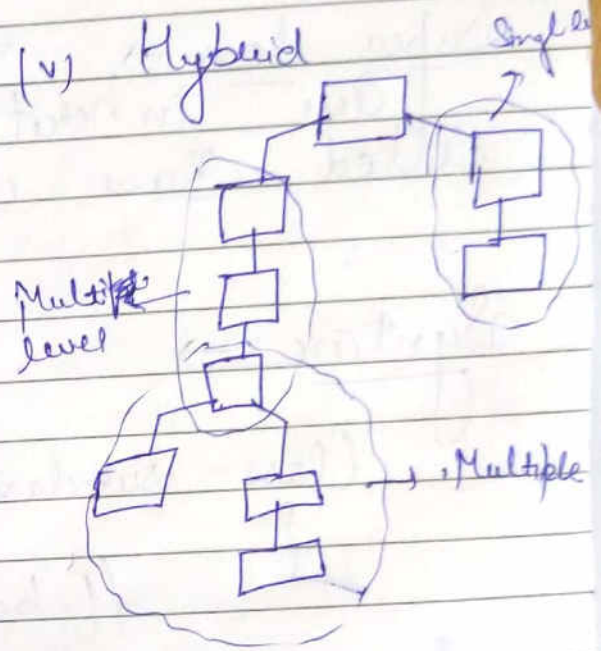 (v) Hybrid
Single
Multi
level
Multiple